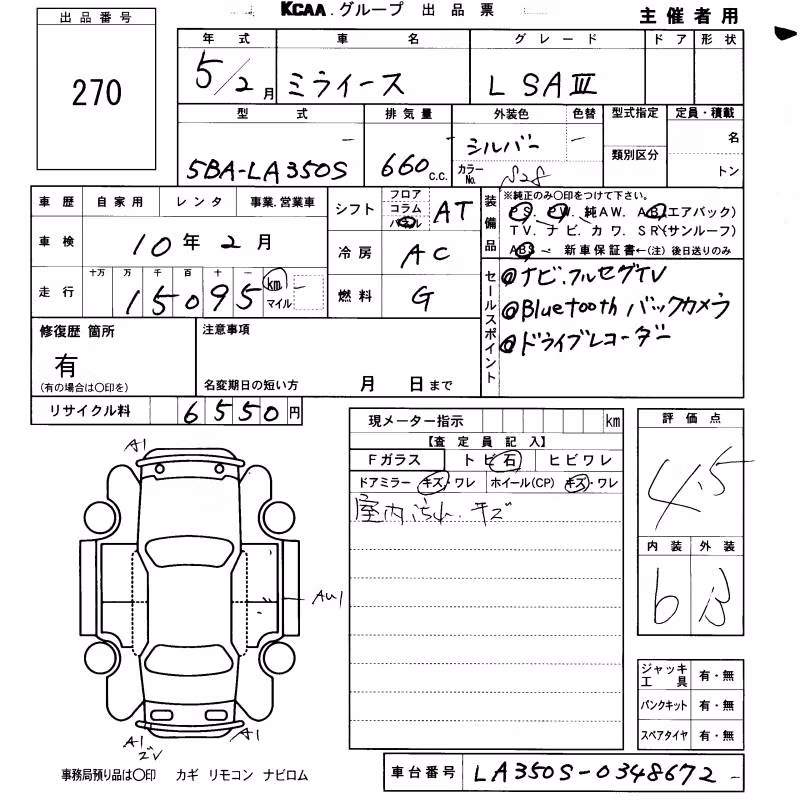 KCAA.グループ 出品票
主催者用
出品番号
270
年式 車名 グレード ドア 形状
5/2月 ミライース L SAⅢ
型式 排気量 外装色 色替 型式指定 定員・積載
5BA-LA350S 660 C.C. シルバー
カラーNo. S28
類別区分 名
トン
車歴 自家用 レンタ 事業.営業車
シフト フロア コラム パネル AT
車検 10年2月
冷房 AC
走行 十万 万 千 百 十 一
15095 km マイル
燃料 G
装備品 ※純正のみ〇印をつけて下さい。
PS. PW. 純AW. AB(エアバック)
TV. ナビ. カワ. SR(サンルーフ)
ABS 新車保証書←(注)後日送りのみ
セールスポイント
@ナビ.フルセグTV
@Bluetooth バックカメラ
@ドライブレコーダー
修復歴 箇所
有
(有の場合は〇印を)
注意事項
名変期日の短い方 月 日まで
リサイクル料 6550円
現メーター指示 km
【査定員記入】
Fガラス トビ石 ヒビワレ
ドアミラー キズ・ワレ ホイール(CP) キズ・ワレ
室内汚れ.キズ
評価点
4.5
内装 外装
6 B
A1
AU1
A1
2V
A1
ジャッキ工具 有・無
パンクキット 有・無
スペアタイヤ 有・無
事務局預り品は〇印 カギ リモコン ナビロム
車台番号 LA350S-0348672